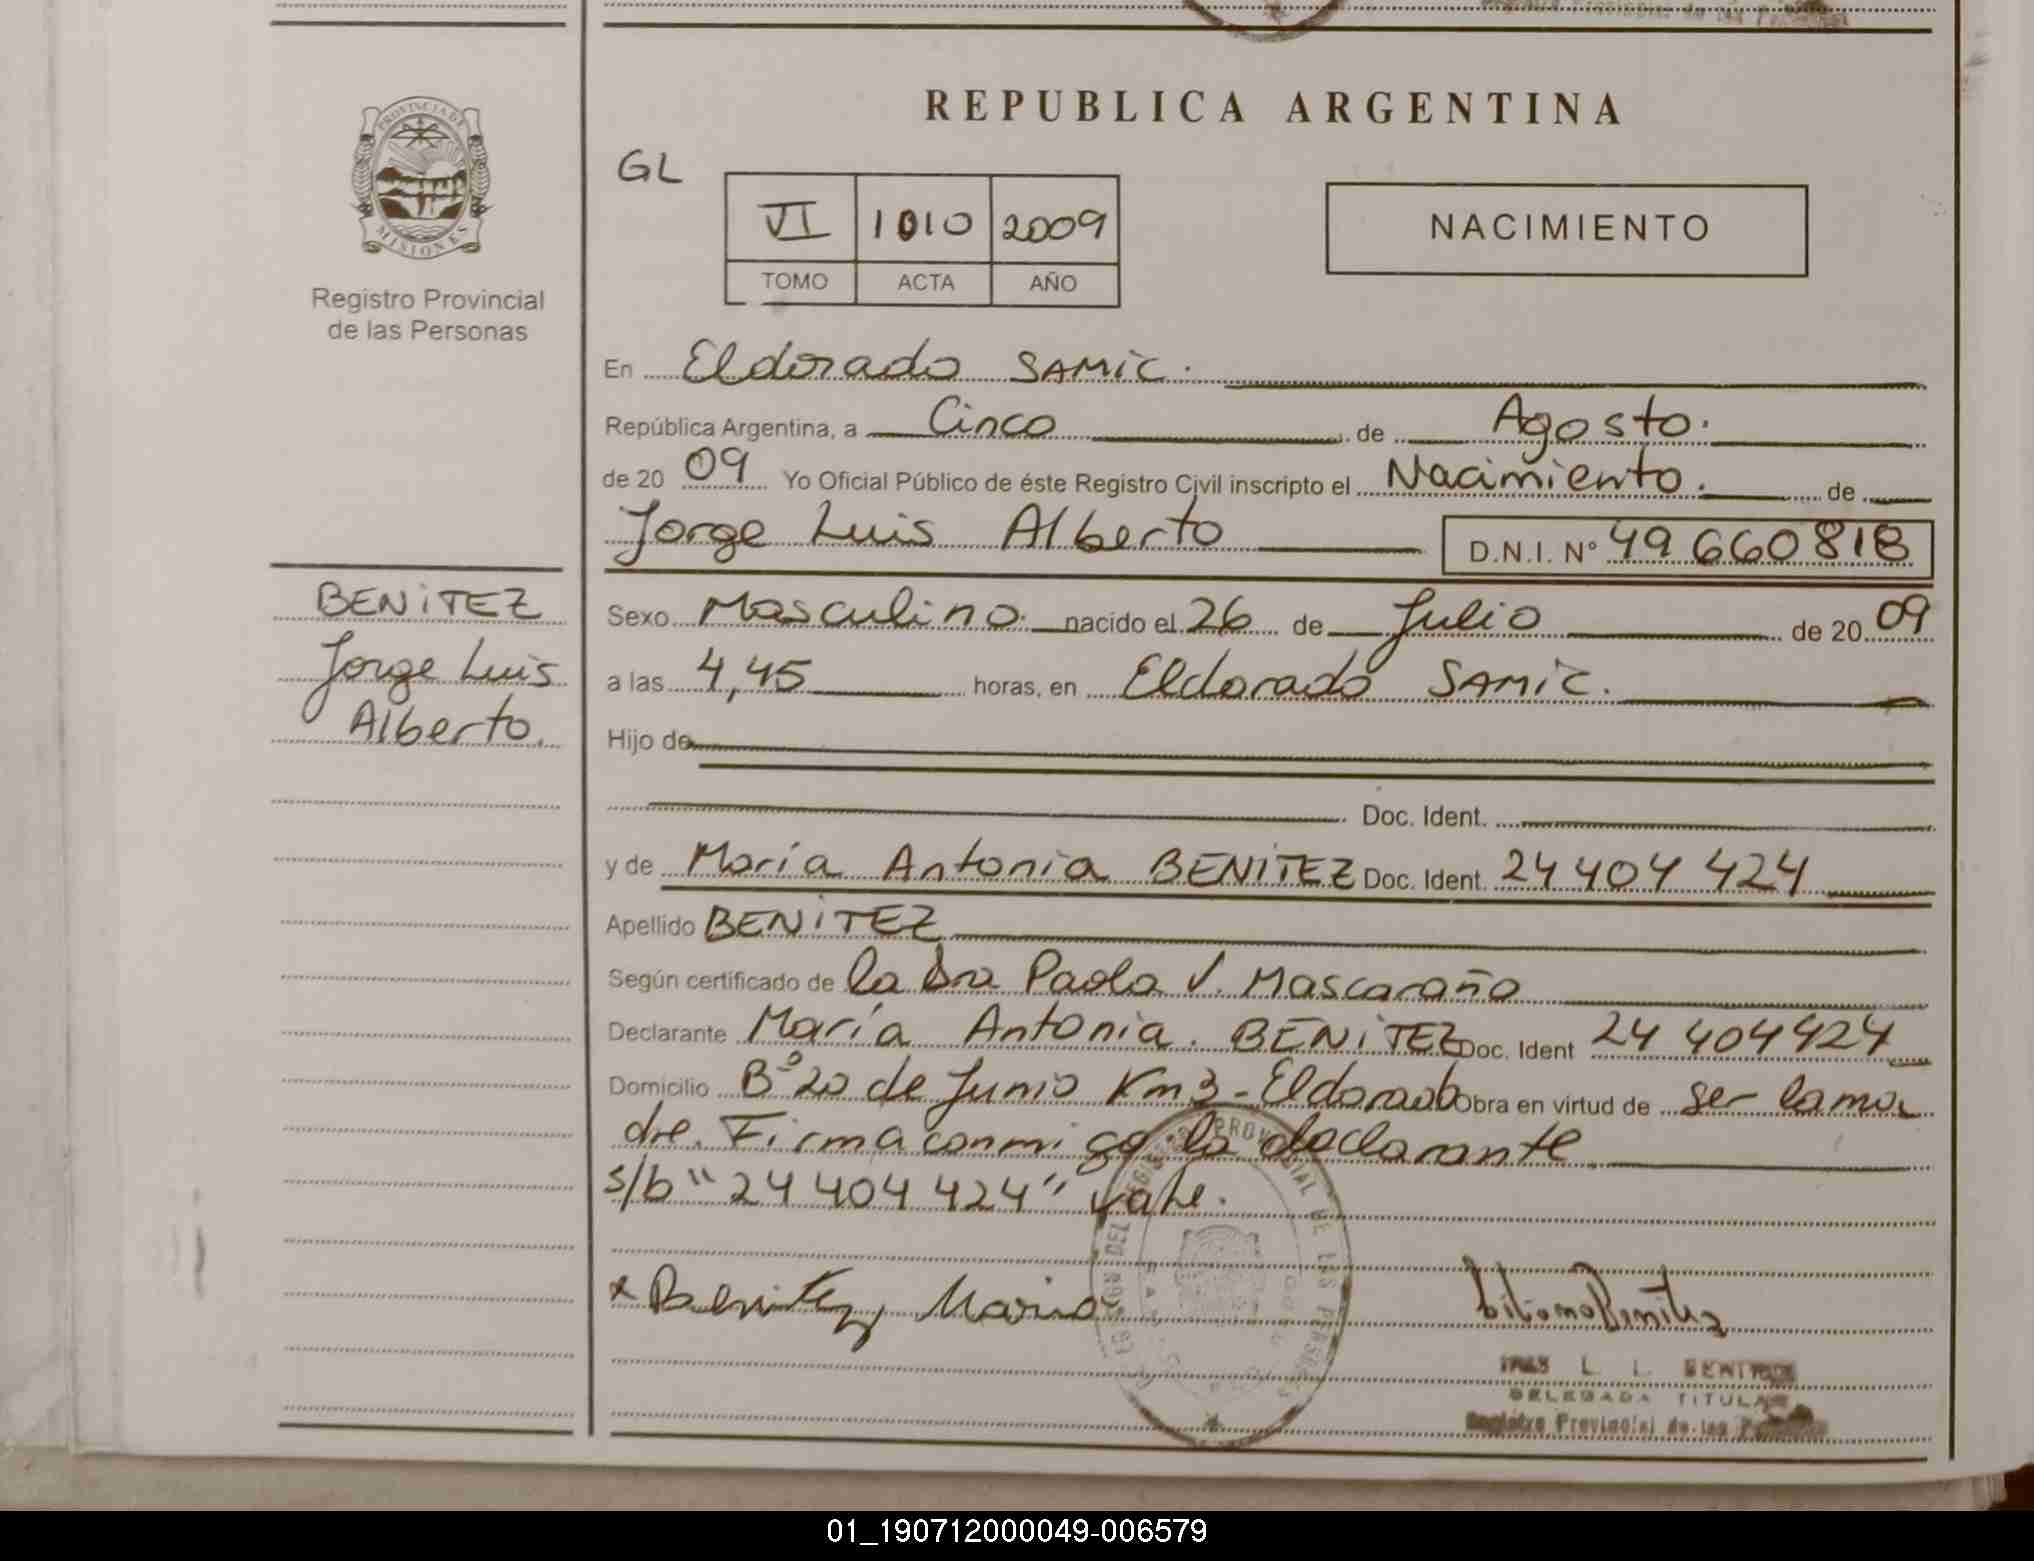 REPUBLICA ARGENTINA
PROVINCIA DE
MISIONES
Registro Provincial
de las Personas
GL
VI 1010 2009
TOMO ACTA AÑO
NACIMIENTO
En Eldorado SAMIC.
República Argentina, a Cinco de Agosto.
de 20 09 Yo Oficial Público de éste Registro Civil inscripto el Nacimiento. de
Jorge Luis Alberto D.N.I. Nº 49 660 818
BENITEZ
Jorge Luis
Alberto.
Sexo Masculino. nacido el 26 de Julio de 20 09
a las 4,45 horas, en Eldorado SAMIC.
Hijo de
Doc. Ident.
y de María Antonia BENITEZ Doc. Ident. 24 404 424
Apellido BENITEZ
Según certificado de la Dra Paola V. Mascaraño
Declarante María Antonia. BENITEZ Doc. Ident 24 404 424
Domicilio Bº 20 de Junio Km 3 - Eldorado Obra en virtud de ser la ma
dre. Firma conmigo la declarante
s/b "24 404 424" vale.
x Benitez, Maria
DELEGADA TITULAR
Registro Provincial de las
REGISTRO PROVINCIAL DE LAS PERSONAS
01_190712000049-006579